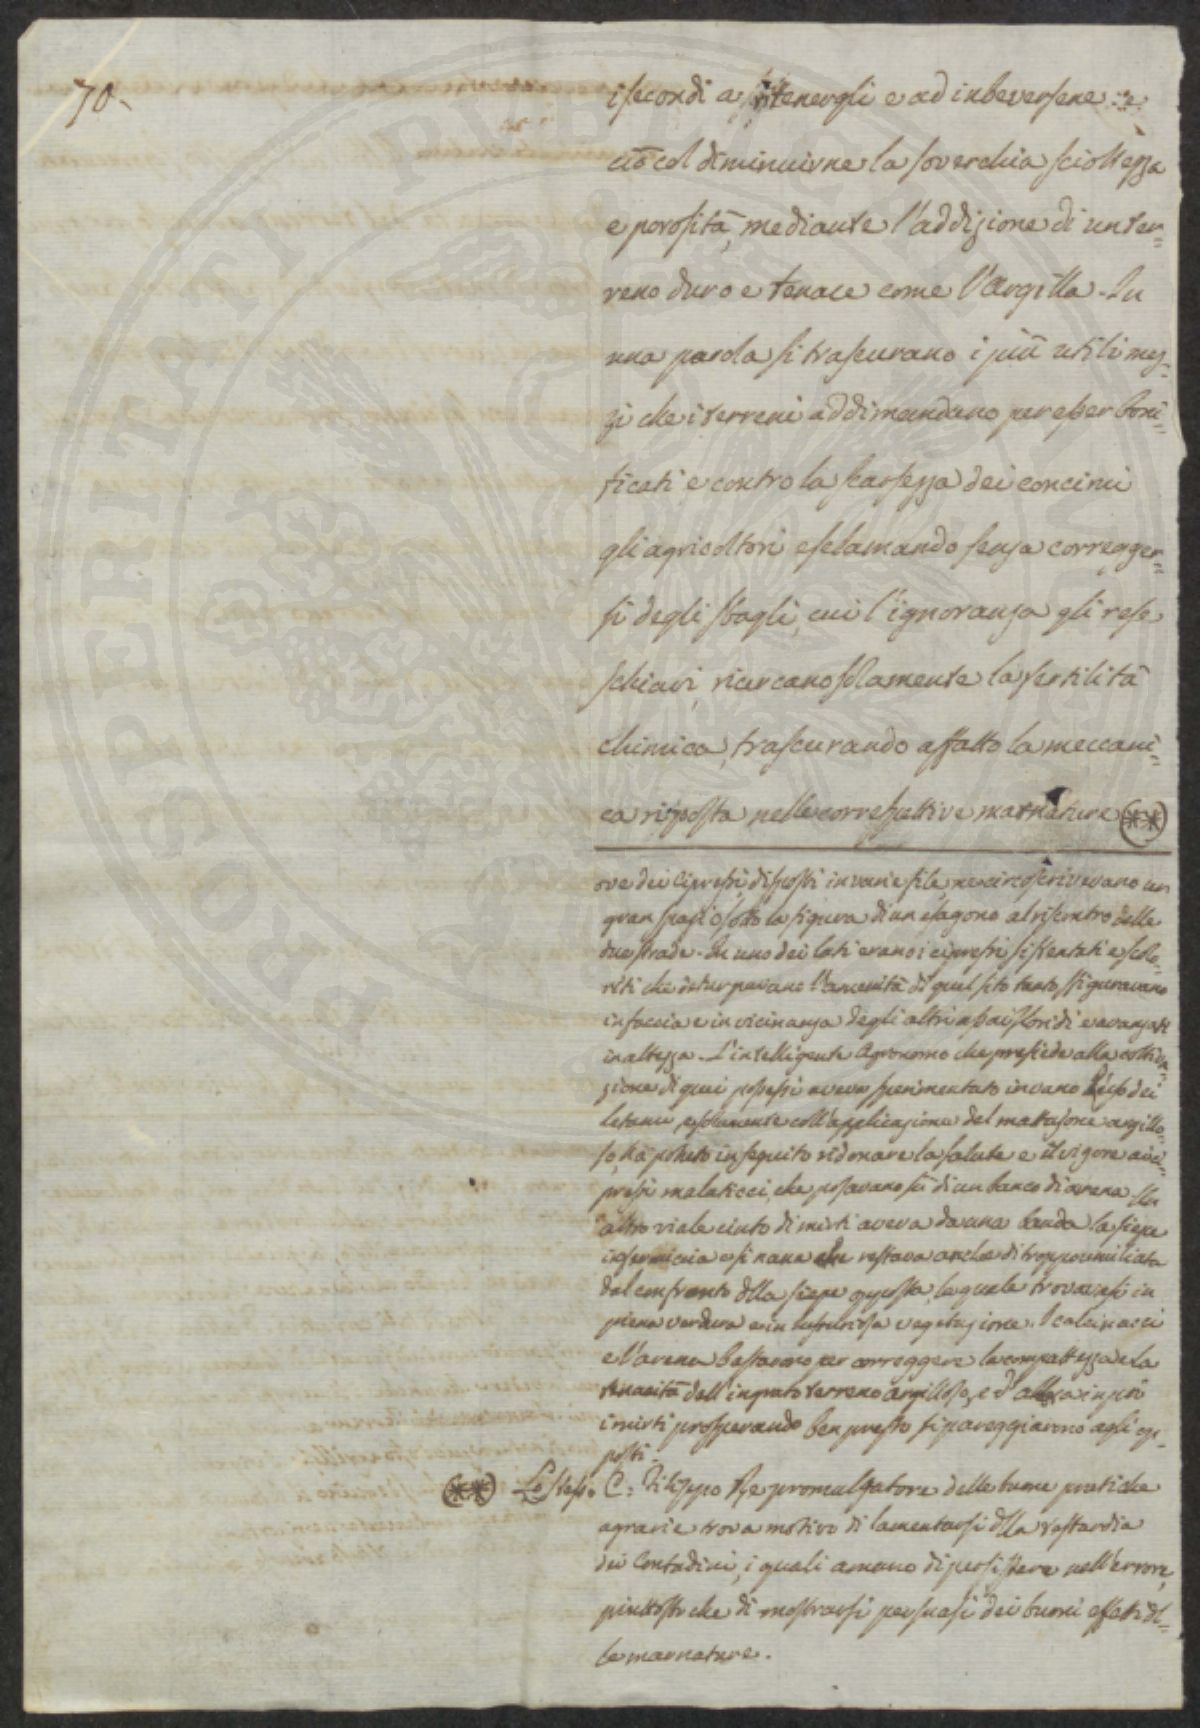 70.
i secondi a ritenergli e ad inbeversene: e
ciò col diminuirne la soverchia scioltezza
e porosità, mediante l'addizione di un ter=
reno duro e tenace come l'argilla. In
una parola si trascurano i più utili mez=
zi che i terreni addimandano per esser boni=
ficati, e contro la scarsezza dei concimi
gli agricoltori esclamando senza corregger=
si degli sbagli, cui l'ignoranza gli rese
schiavi, ricercano solamente la fertilità
chimica, trascurando affatto la meccani=
ca risposta nelle correspettive marnature (**)
ove dei cipressi, disposti in varie file, ne circoscrivevano un
gran spazio sotto la figura di un esagono al riscontro delle
due strade. In uno dei lati erano i cipressi sì stentati e scolo=
riti che deturpavano l'amenità di quel sito tanto sfiguravano
in faccia e in vicinanza degli altri assai floridi e avanzati
in altezza. L'intelligente Agronomo che presiede alla coltiva=
zione di quei possessi aveva sperimentato invano l'uso dei
letami, e solamente coll'applicazione del mattajone argillo=
so, ha potuto in seguito ridonare la salute e il vigore ai ci=
pressi malaticci, che posavano su di un banco di arena. Un
altro viale cinto di mirti aveva da una banda la siepe
infermiccia e sì nana che restava anche di troppo umiliata
dal confronto della siepe opposta, la quale trovavasi in
piena verdura e in lussuriosa vegetazione. I calcinacci
e l'arena bastarono per correggere la compattezza e la
tenacità dell'ingrato terreno argilloso, e d'allora in poi
i mirti prosperando ben presto si pareggiarono agli op=
posti.
(**) Lo stesso C: Filippo Re promulgatore delle buone pratiche
agrarie trova motivo di lamentarsi della testardia
dei Contadini, i quali amano di persistere nell'errore,
piuttosto che di mostrarsi persuasi dei buoni effetti del=
le marnature.